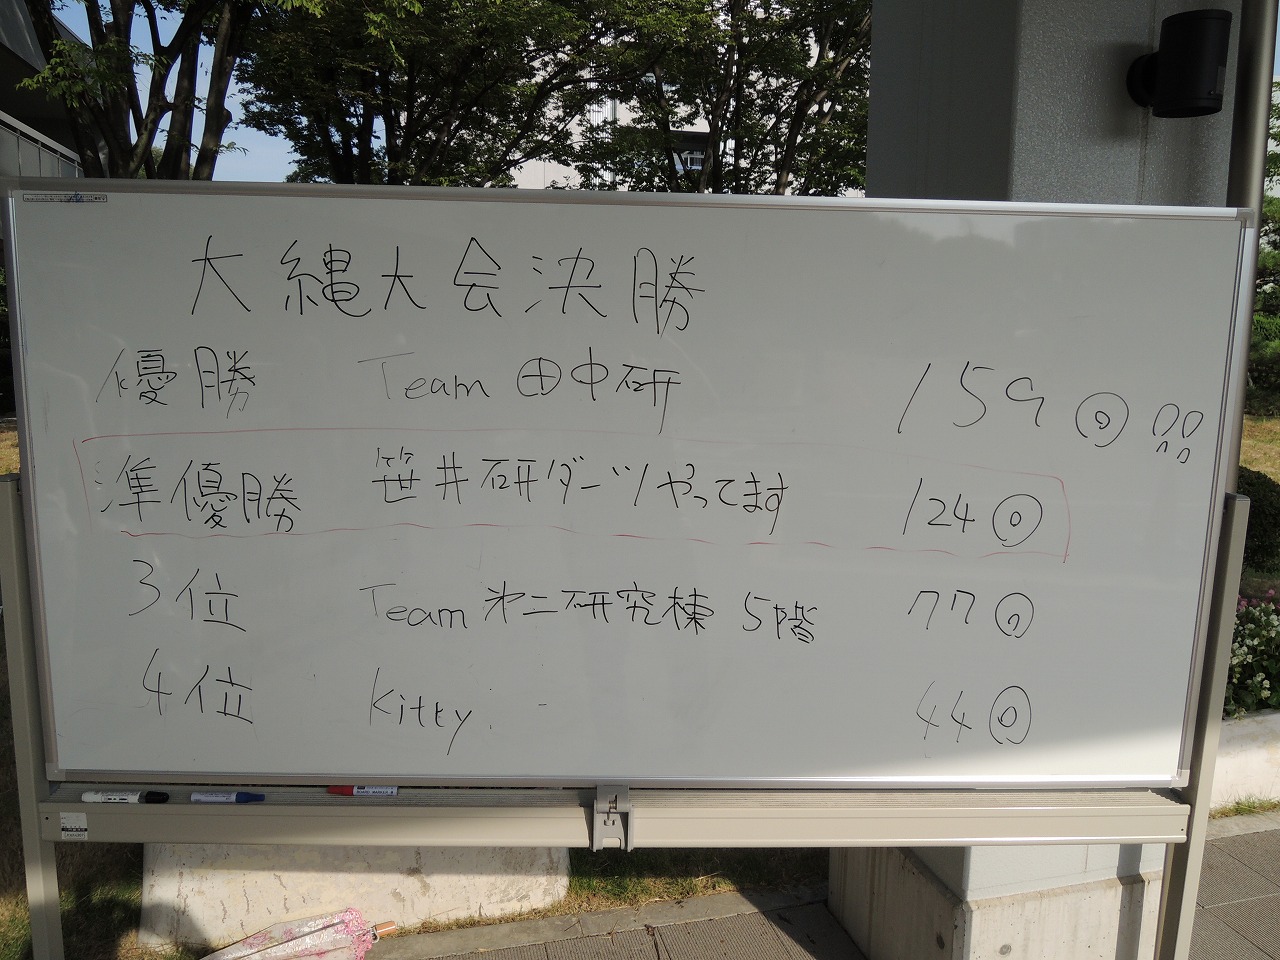 大縄大会決勝
優勝 Team 田中研 159回!!
準優勝 笹井研ダーツやってます 124回
3位 Team 第二研究棟 5階 77回
4位 Kitty. 44回